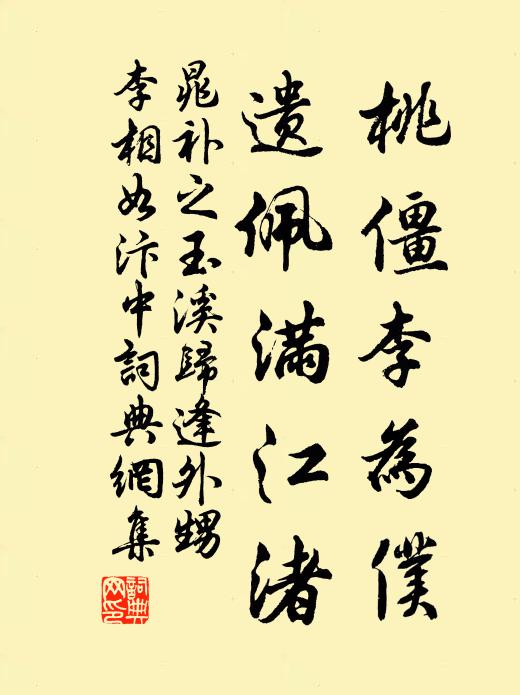 桃僵李為僕
遺佩滿江渚
晁补之玉溪歸逢外甥
李相如汴中詞典網集
詞典网印